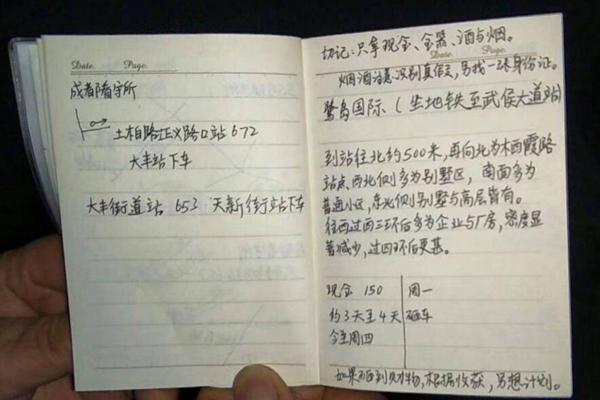 Date. Page.
成都看守所
土柏路正义路口站 672
大丰站下车
大丰街道站 653 天新街站下车
切记:只拿现金、金器、酒与烟。
Date. Page.
烟酒注意识别真假, 另找一张身份证。
鹭岛国际、(坐地铁至武侯大道站)
到站往北约500米,再向北为木西霞路
站点西北侧多为别墅区, 南面多为
普通小区,东北侧别墅与高层皆有。
往西过西三环后多为企业与厂房,密度显
著减少,过四环后更甚。
现金 150 周一
约3天至4天 砸车
今至周四
如果砸到财物,根据收获,另想计划。